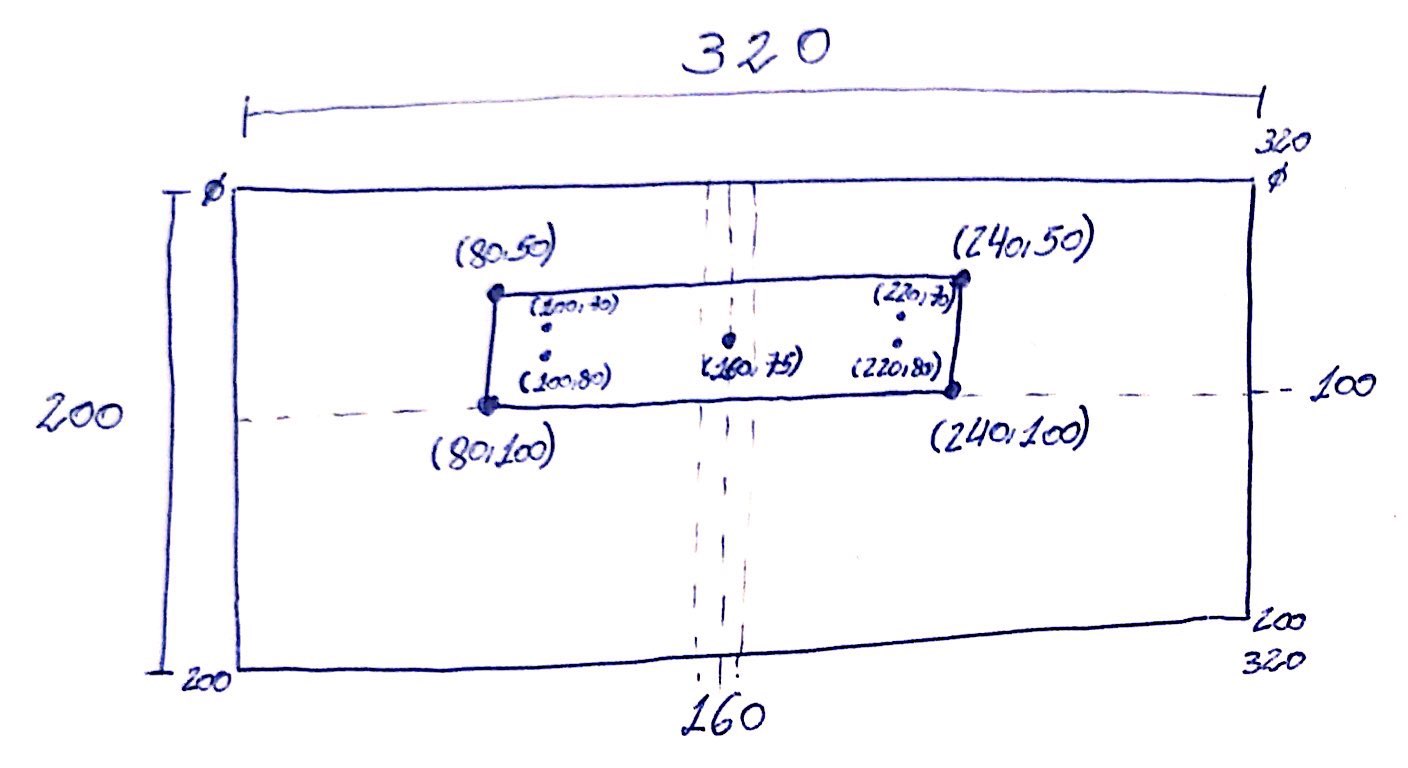 320
320
ø ø
(80,50) (240,50)
(100,70) (220,70)
(160,75)
(100,80) (220,80)
200 100
(80,100) (240,100)
200
200 320
160